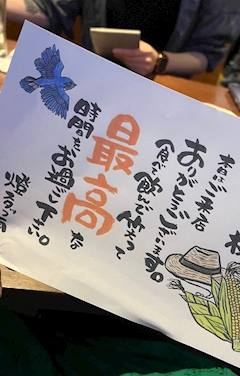 様
本日はご来店
ありがとうございます。
食べて飲んで笑って
最高な
時間をお過ごし下さい。